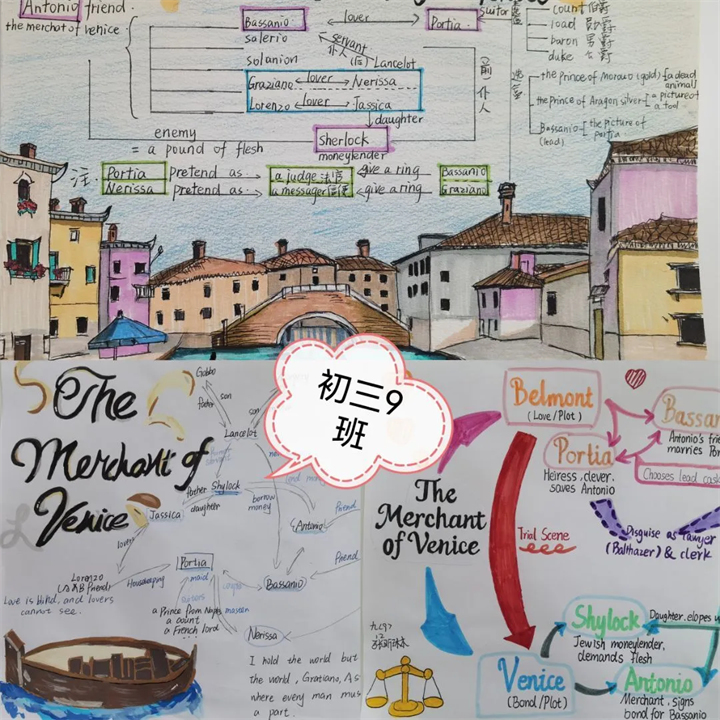 Antonio friend.
the merchot of venice.
Bassanio
lover
Portia
suitor
count 伯爵
load 勋爵
baron 男爵
duke 公爵
salerio
servant
仆人
Lancelot
solanion
Graziano
lover
Nerissa
Lorenzo
lover
Jassica
前仆人
the prince of Moraco (gold)
a dead
animal
the prince of Aragon silver
picture of
a tool
Bassanio
(lead)
the picture of
portia
daughter
enemy
= a pound of flesh
Sherlock
moneylender
注:
Portia
pretend as..
a judge 法官
give a ring
Bassanio
Nerissa
pretend as..
a messager信使
give a ring
Graziano
初三9
班
The
Merchant of
Venice
Gobbo
father
son
son
Lancelot
father
Shylock
daughter
borrow
money
Jassica
Antonio
friend
lover
Portia
maid
Housekeeping
friend
Bassanio
Lorenzo
Love is blind, and lovers
cannot see.
a Prince from Naples
a count
a French lord
Nerissa
I hold the world but
the world, Gratiano, As
where every man mus
a part.
Belmont
(Love/Plot)
Bassan
Antonio's frie
marries Por
Portia
Heiress, clever,
saves Antonio
Chooses lead cask
The
Merchant
of Venice
Trial Scene
Disguise as lawyer
(Balthazer) & clerk
Shylock
Jewish moneylender,
demands flesh
Daughter.elopes
九(9)
Venice
(Bond/Plot)
Antonio
Merchant, signs
bond for Bassanio